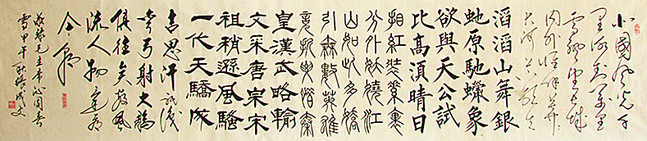 北國風光千
里冰封萬里
雪飄望長城
内外惟餘莽莽
大河上下頓失
滔滔山舞銀
蛇原馳蠟象
欲與天公試
比高須晴日
看紅裝素裹
分外妖嬈江
山如此多嬌
引無數英雄
競折腰惜秦
皇漢武略輸
文采唐宗宋
祖稍遜風騷
一代天驕成
吉思汗只識
彎弓射大鵰
俱往矣數風
流人物還看
今朝
毛主席沁園春
雪甲午